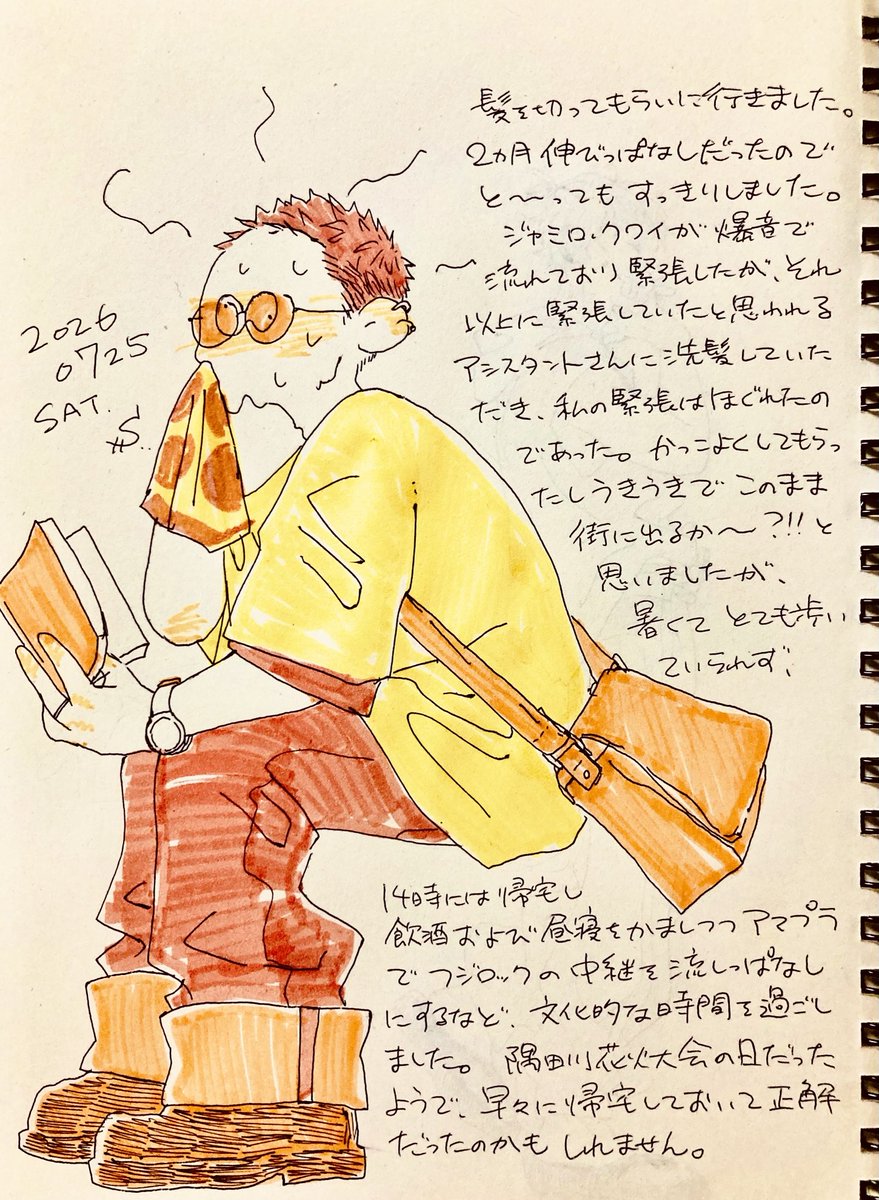 髪を切ってもらいに行きました。
2ヵ月伸びっぱなしだったので
と〜ってもすっきりしました。
ジャミロ・クワイが爆音で
流れており緊張したが、それ
以上に緊張していたと思われる
アシスタントさんに洗髪していた
だき、私の緊張はほぐれたの
であった。かっこよくしてもらっ
たしうきうきでこのまま
街に出るか〜?!!と
思いましたが、
暑くてとても歩い
ていられず、
2026
0725
SAT.
14時には帰宅し
飲酒および昼寝をかましつつアマプラ
でフジロックの中継を流しっぱなし
にするなど、文化的な時間を過ごし
ました。隅田川花火大会の日だった
ようで、早々に帰宅しておいて正解
だったのかもしれません。